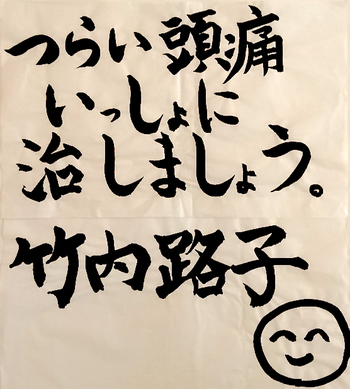 つらい頭痛
いっしょに
治しましょう。
竹内路子